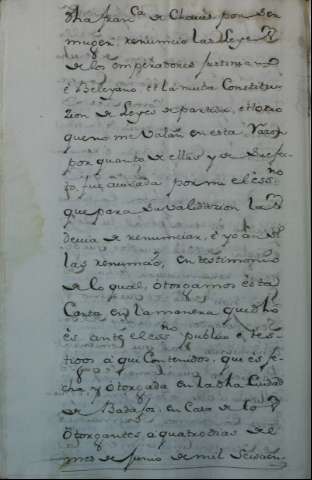 dha Fran.ca de Chaues por ser
muger, renuncio las Leyes
de los emperadores Justiniano
é Beleyano, et la nueba Constitu
zion de Leyes de partida, et toro
que no me valan en esta Razon
por quanto de ellas y de su efe
to, fui auisada por mi el ess.no
que para su validazion las
deuia de renunciar, é yo
las renuncio, en testimonio
de lo qual, otorgamos esta
Carta en la manera que dho
es ante el ess.no publico é tes-
tigos aqui Contenidos, que es fe
cha y otorgada en la dha Ciudad
de Badajos, en Casa de los
otorgantes, a quatro dias del
mes de Junio de mil